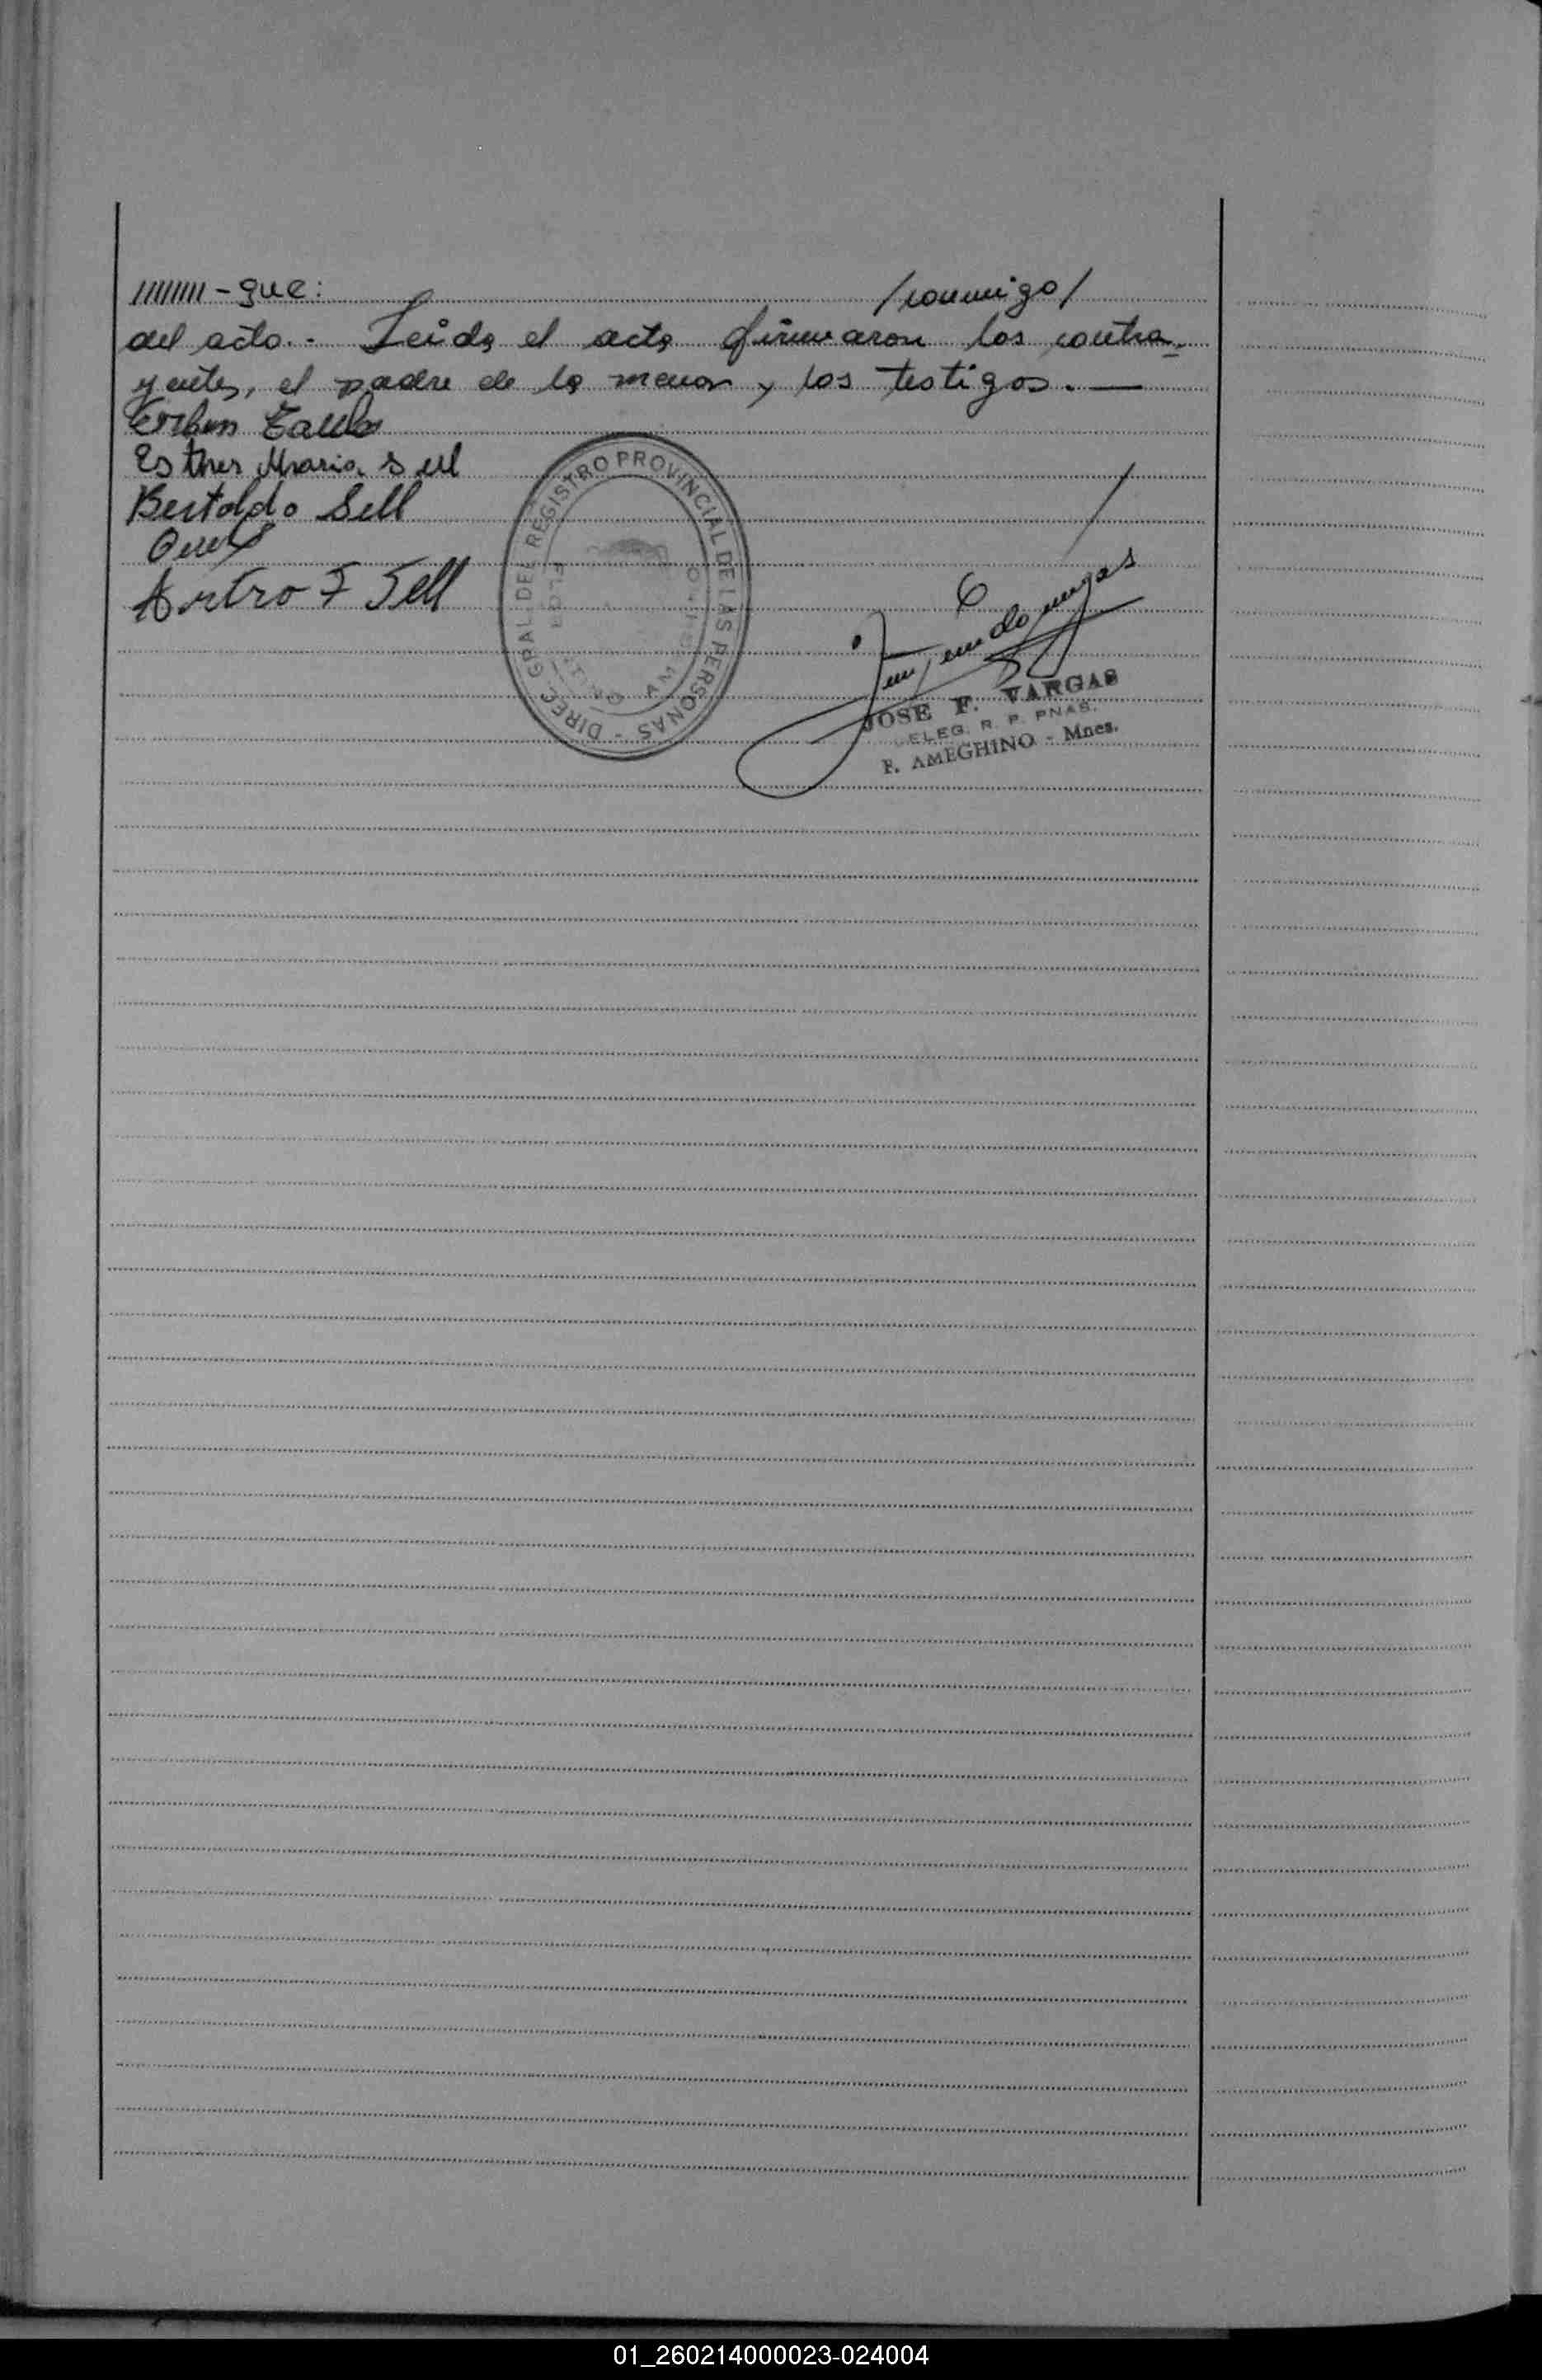 /////////-gue:
/conmigo/
del acto.- Leida el acta firmaron los contra-
yentes, el padre de la menor y los testigos.—
Esther Maria Sell
Bertoldo Sell
Artro F Sell
DIREC. GRAL. DEL REGISTRO PROVINCIAL DE LAS PERSONAS -
JOSE F. VARGAS
DELEG. R. P. PNAS.
F. AMEGHINO - Mnes.
01_260214000023-024004